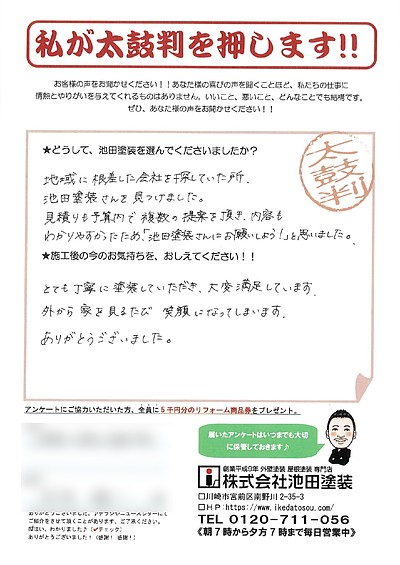 私が太鼓判を押します!!
お客様の声をお聞かせください！！あなた様の喜びの声を聞くことほど、私たちの仕事に
情熱とやりがいを与えてくれるものはありません。いいこと、悪いこと、どんなことでも結構です。
ぜひ、あなた様の声をお聞かせください！！
太鼓判
★どうして、池田塗装を選んでくださいましたか？
地域に根差した会社を探していた所、
池田塗装さんを見つけました。
見積りも予算内で複数の提案を頂き、内容も
わかりやすかったため、「池田塗装さんにお願いしよう!」と思いました。
★施工後の今のお気持ちを、おしえてください！！
とても丁寧に塗装していただき、大変満足しています。
外から家を見るたび笑顔になってしまいます。
ありがとうございました。
アンケートにご協力いただいた方、全員に５千円分のリフォーム商品券をプレゼント。
届いたアンケートはいつまでも大切
に保管しておきます♪
創業平成9年 外壁塗装 屋根塗装 専門店
株式会社池田塗装
□川崎市宮前区南野川2-35-3
□HP:https://www.ikedatosou.com/
TEL 0120-711-056
《朝7時から夕方7時まで毎日営業中》
ご紹介をさせて頂くことがあります。ご了承ください。
(✔チェック)
ありがとうございます！(感謝！感謝！)